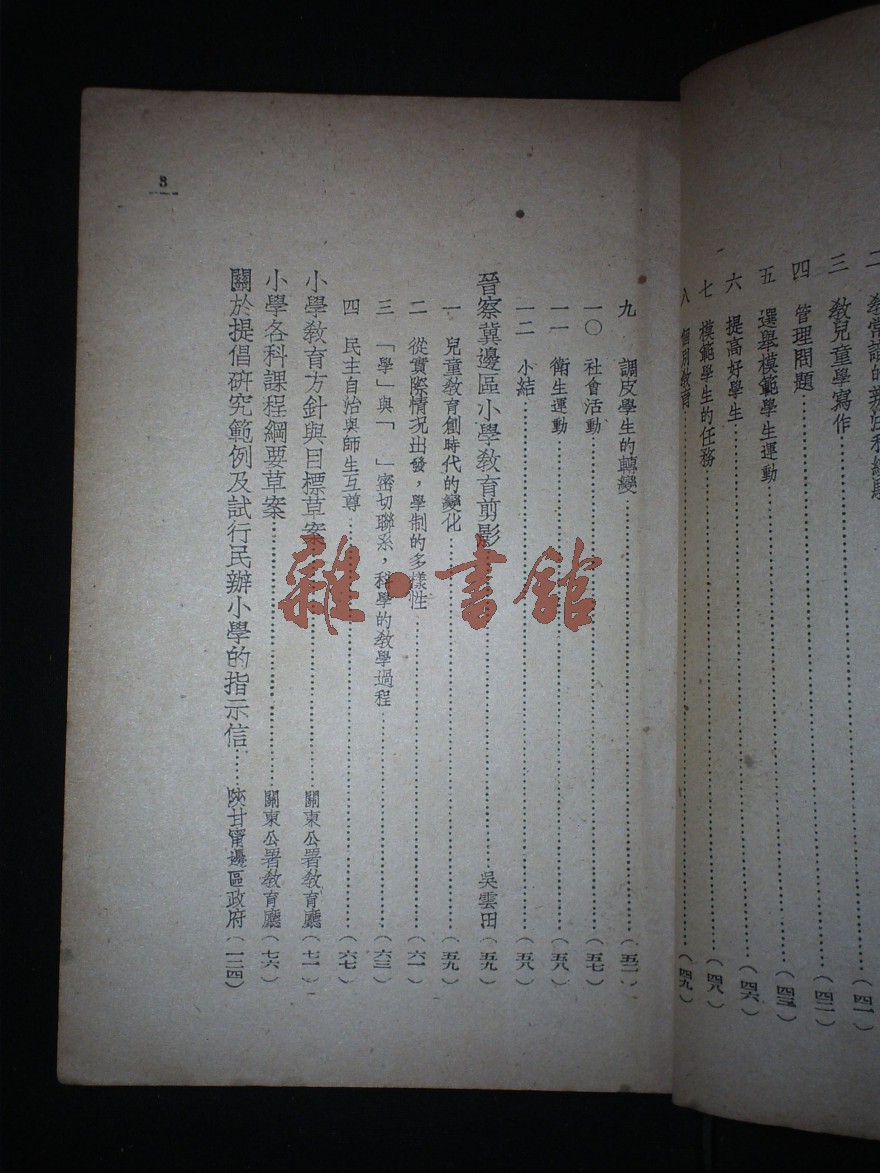 三　教兒童學寫作………(四二)
四　管理問題………(四三)
五　選舉模範學生運動………(四三)
六　提高好學生………(四六)
七　模範學生的任務………(四八)
八　個別教育………(四九)
九　調皮學生的轉變………(五二)
一〇　社會活動………(五七)
一一　衛生運動………(五八)
一二　小結………(五八)
晉察冀邊區小學教育剪影………吳雲田(五九)
一　兒童教育創時代的變化………(五九)
二　從實際情況出發，學制的多樣性………(六一)
三　「學」與「　」密切聯系，科學的教學過程………(六三)
四　民主自治與師生互尊………(六七)
小學教育方針與目標草案………關東公署教育廳(七一)
小學各科課程綱要草案………關東公署教育廳(七六)
關於提倡研究範例及試行民辦小學的指示信……陝甘甯邊區政府(一二四)
3
雜·書館